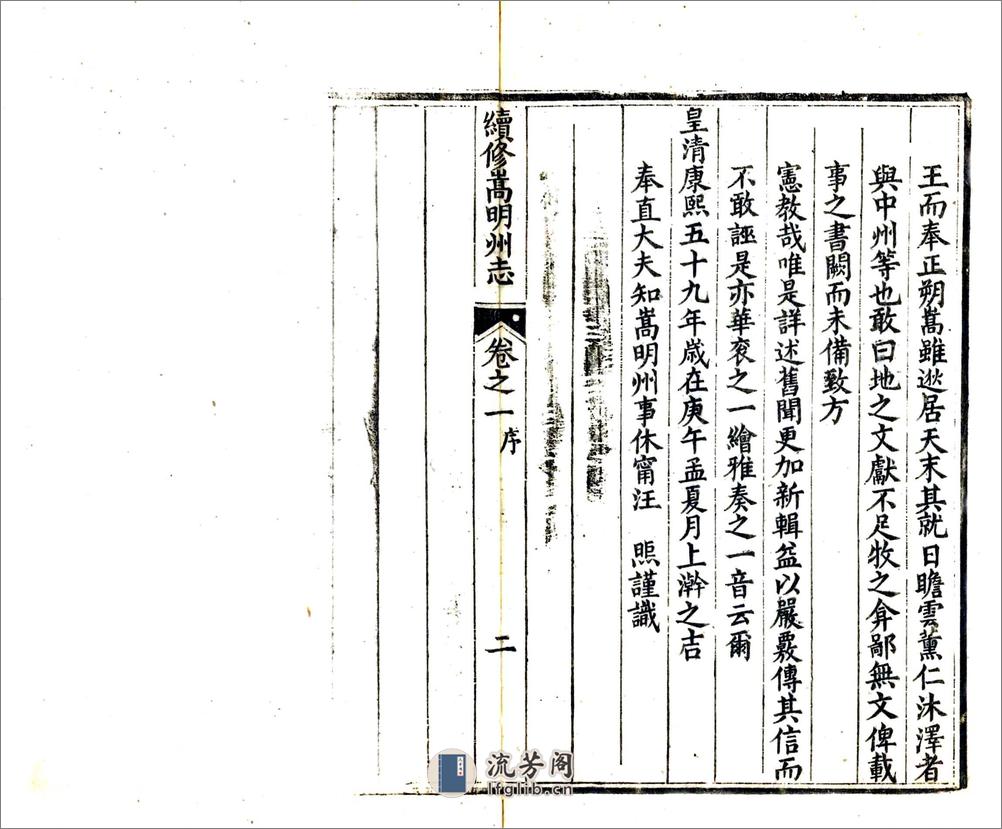 王而奉正朔嵩雖逖居天末其就日瞻雲薰仁沐澤者
與中州等也敢曰地之文獻不足牧之弇鄙無文俾載
事之書闕而未備致方
憲教哉唯是詳述舊聞更加新輯益以嚴覈傳其信而
不敢誣是亦華袞之一繪雅奏之一音云爾
皇清康熙五十九年歲在庚午孟夏月上澣之吉
奉直大夫知嵩明州事休甯汪 煦謹識
續修嵩明州志 卷之一 序 二
流芳阁
lfglib.cn